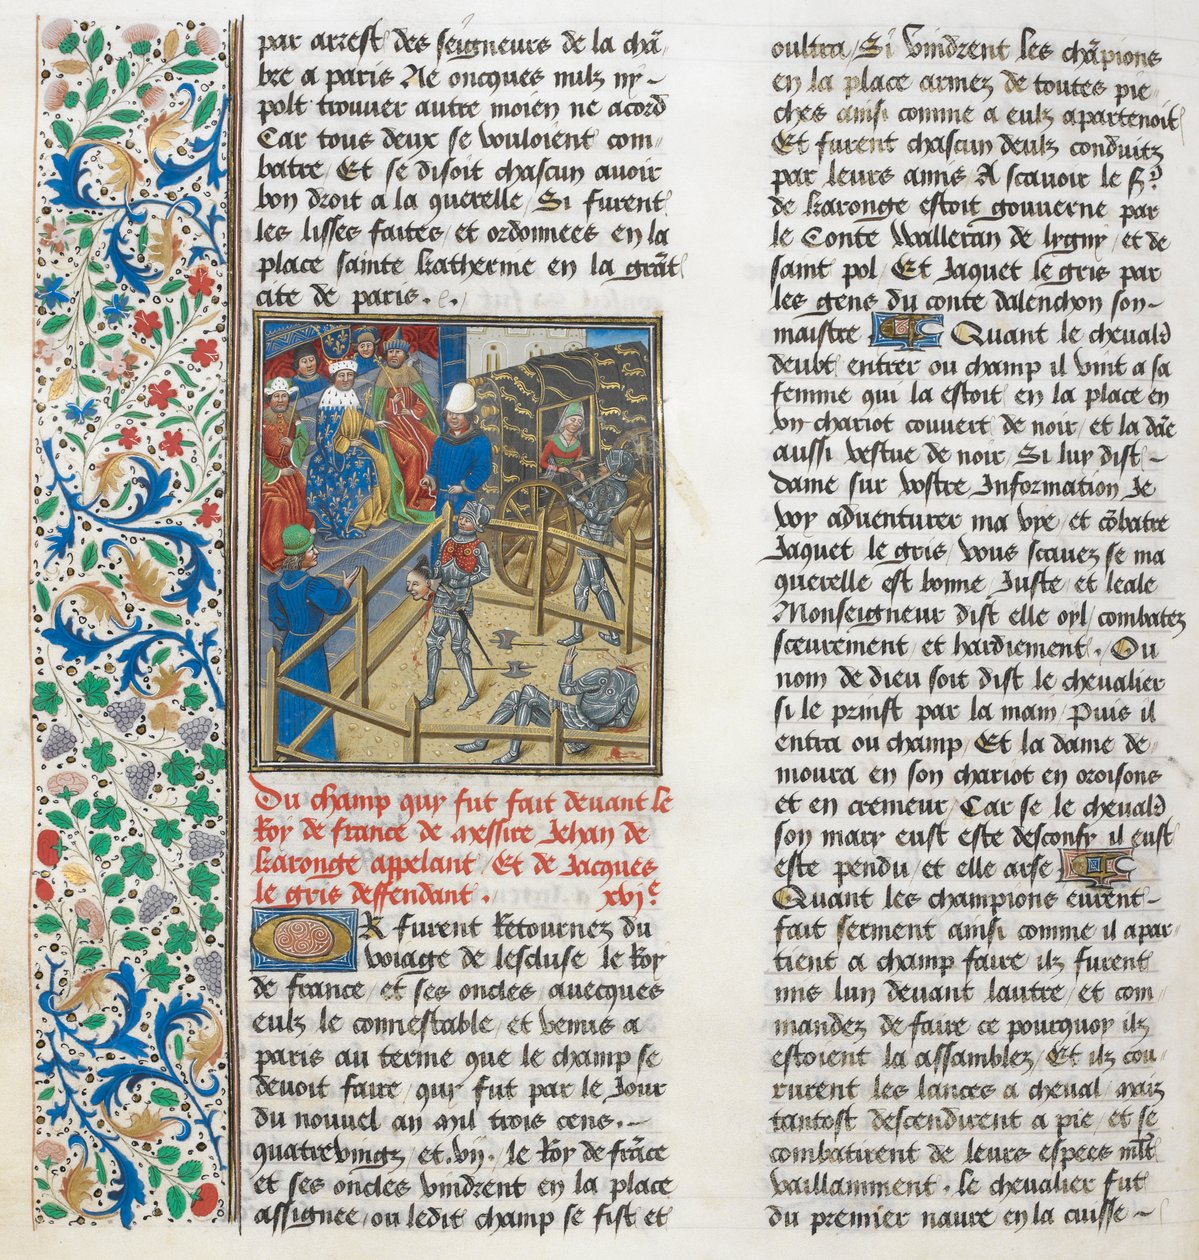 par arrest des seigneurs de la chã-
bre a paris Ne oncques nulz ny-
polt trouver autre moien ne acord
Car tous deux se vouloient com-
batre / Et se disoit chascun avoir
bon droit a la querelle / Si furent
les lisses faites / et ordonnees en la
place sainte katherine en la grãt
cite de paris .
Du champ quy fut fait devant le
Roy de france de messire Jehan de
karonge appelant / Et de Jacques
le gris deffendant . xvj.e
OR furent Retournez du
voiage de lescluse le Roy
de france / et ses oncles avecques
eulz le connestable / et venus a
paris au terme que le champ se
devoit faire / quy fut par le Jour
du nouvel an mil trois cens . -
quatrevingz / et . vij . le Roy de frãce
et ses oncles vindrent en la place
assignee / ou ledit champ se fist et
oultra / Si vindrent les chãpions
en la place armez de toutes pie-
ches ainsi comme a eulz apartenoit
Et furent chascun deulz conduitz
par leurs amis / A scavoir le sr.
de karonge estoit gouverne par
le Conte Walleran de lygny / et de
saint pol / Et Jaquet le gris par
les gens du conte dalenchon son-
maistre Quant le chevalr
deubt entrer ou champ il vint a sa
femme qui la estoit / en la place en
vng chariot couvert de noir / et la dãe
aussi vestue de noir / Si luy dist -
dame sur vostre Information Je
voy adventurer ma vye / et cõbatre
Jaquet le gris / vous scavez se ma
querelle est bonne / Juste / et leale
Monseigneur dist elle oyl / combatez
sceurement / et hardiement . Ou
nom de dieu soit dist le chevalier
si le prinst par la main / Puis il
entra ou champ / Et la dame de-
moura en son chariot en oroisons
et en cremeur / Car se le chevalr
son mary eust este desconfy il eust
este pendu / et elle arse
Quant les champions eurent -
fait serment ainsi comme il apar-
tient a champ faire ilz furent
mis lun devant lautre / et com-
mandez de faire ce pourquoy ilz
estoient la assamblez / Et ilz cou-
rurent les lances a cheval / maiz
tantost descendirent a pie / et se
combatirent de leurs espees mlt
vaillamment . le chevalier fut
du premier navre en la cuisse -